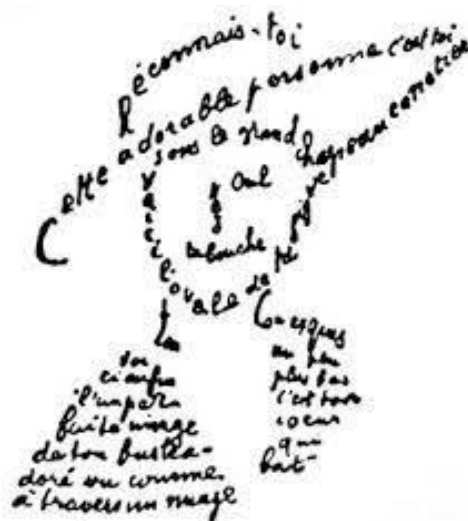 Reconnais-toi
Cette adorable personne c'est toi
sous le grand chapeau canotier
Oeil
Nez
la bouche
Voici l'ovale de ta figure
Cou exquis
Voi
ci enfin
l'impar
faite image
de ton buste a-
doré vu comme
à travers un nuage
un peu
plus bas
c'est ton
coeur
qui
bat